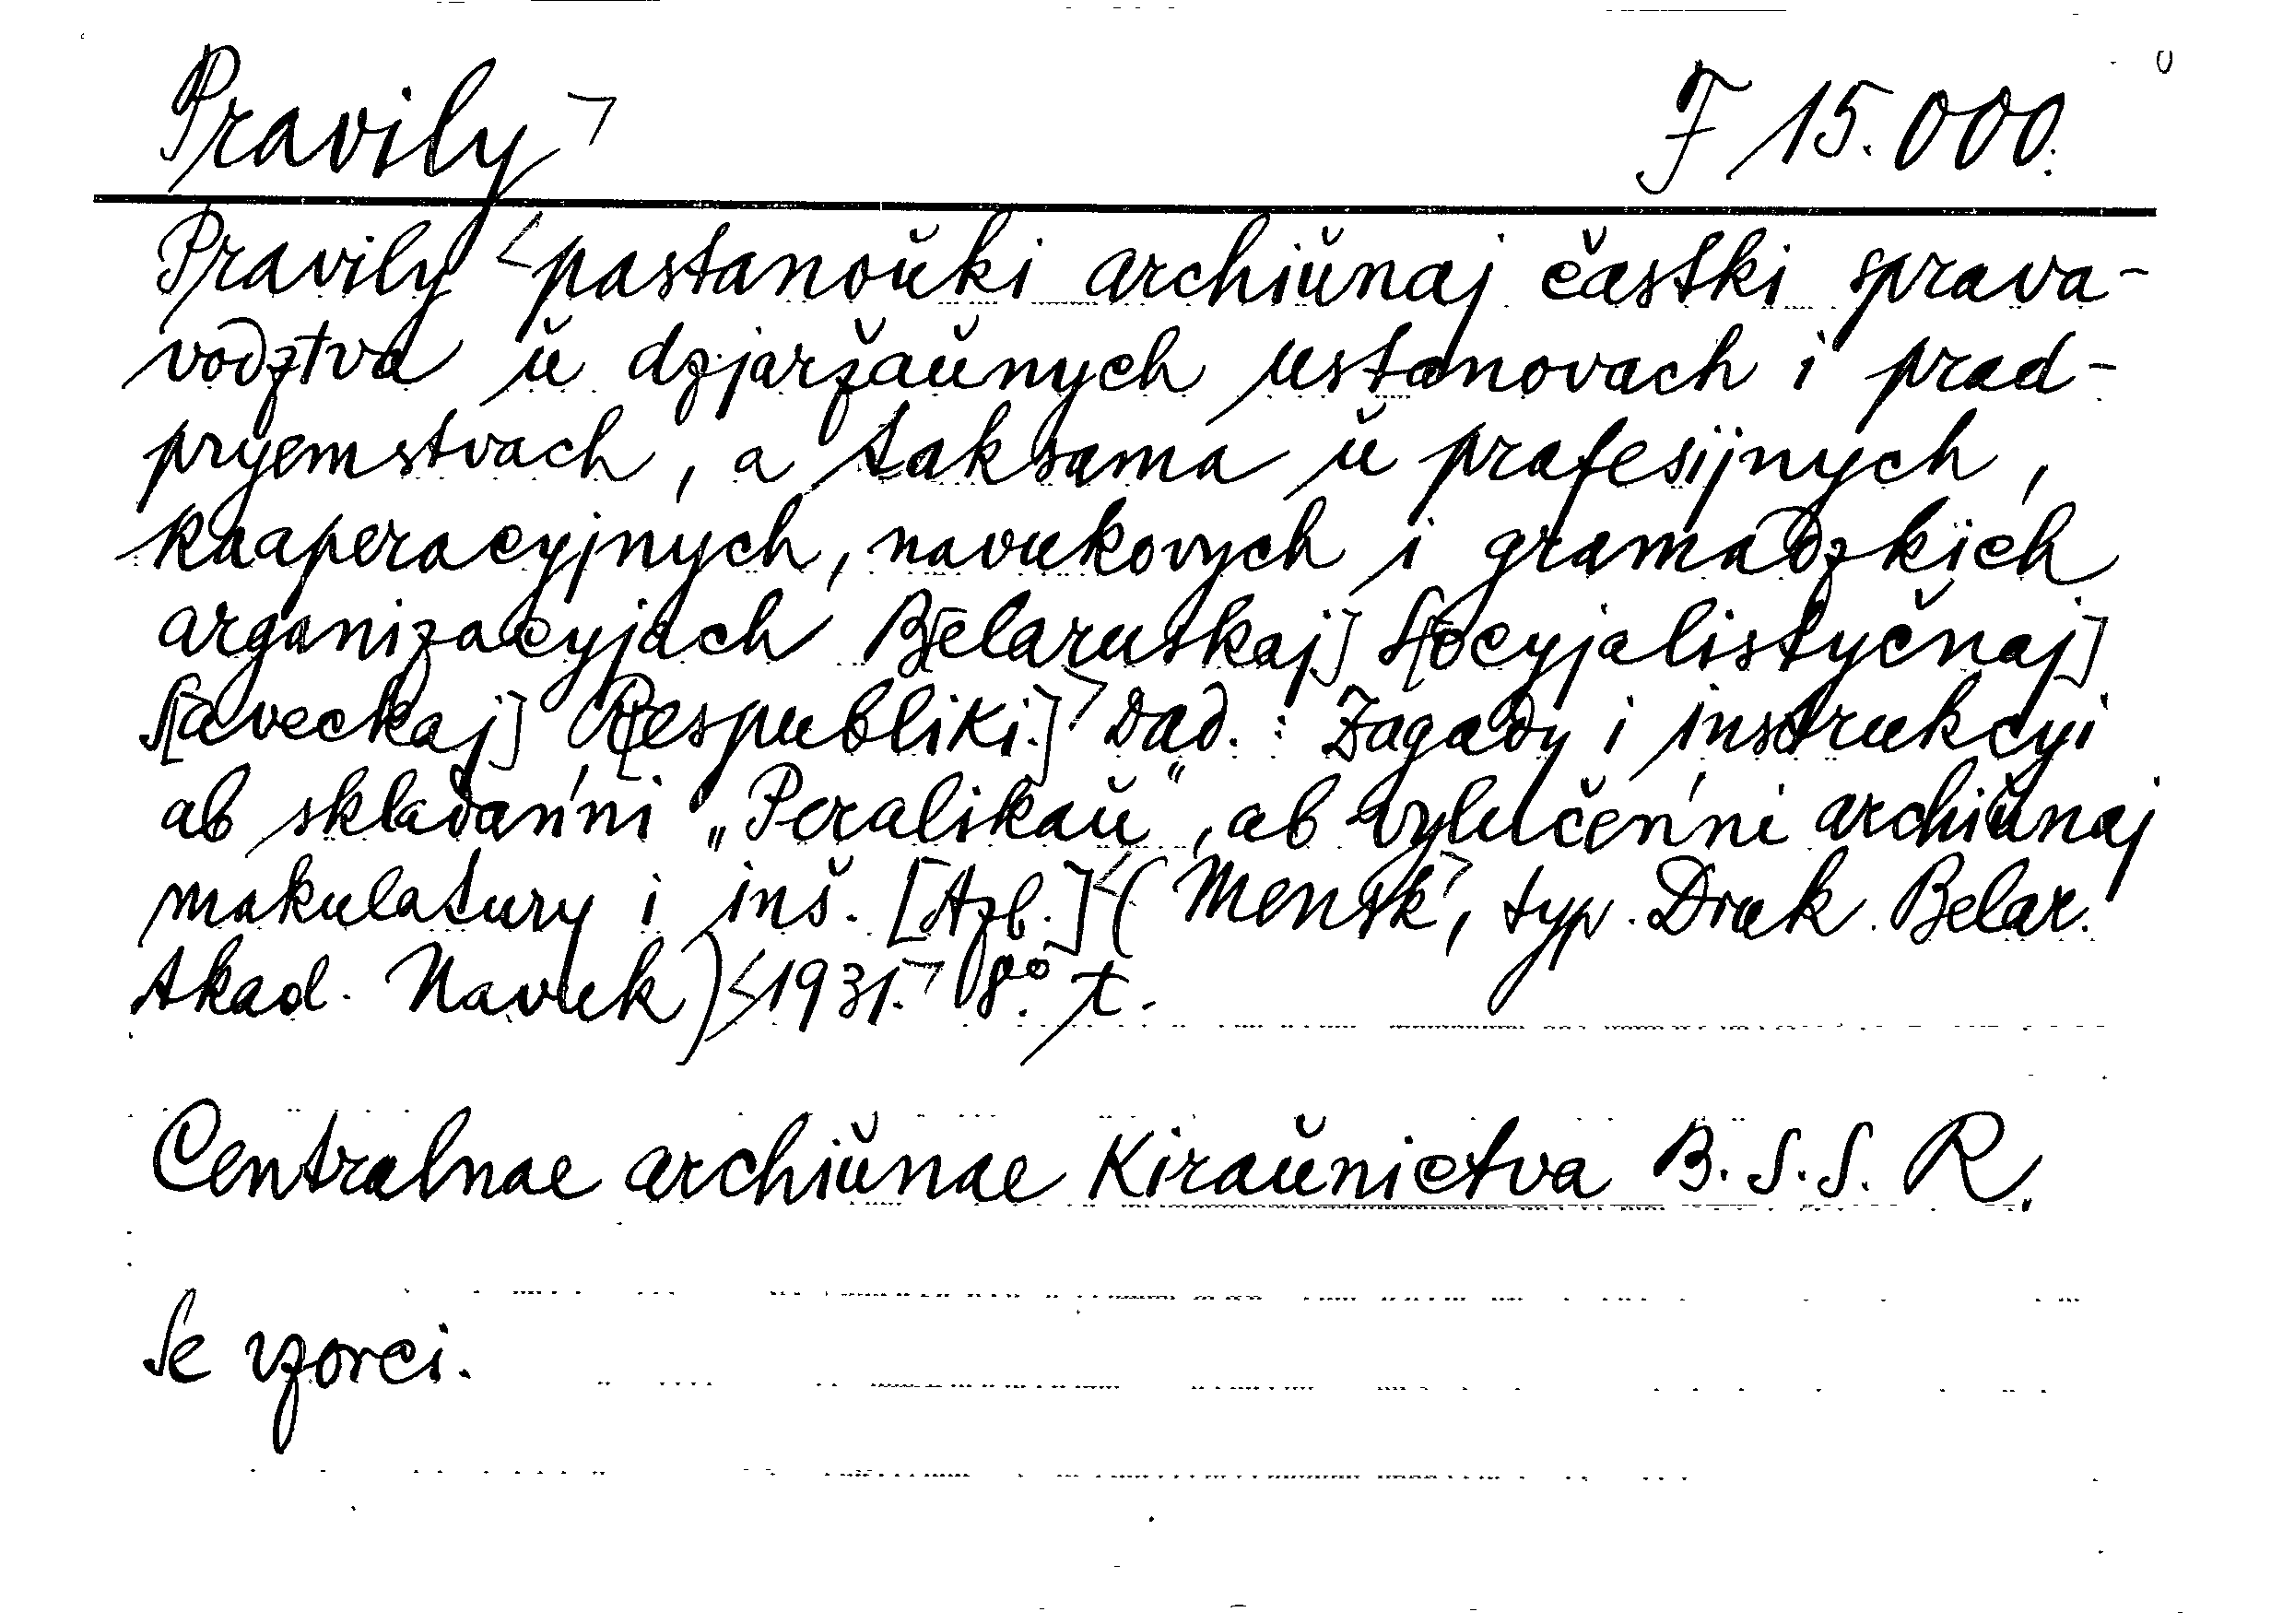 Pravily F 15.000.
Pravily pastanoŭki archiŭnaj častki sprava-
vodztva ŭ dzjaržaŭnych ustanovach i prad-
pryemstvach, a taksama ŭ prafesijnych,
kaaperacyjnych, navukovych i gramadzkich
arganizacyjach B[elaruskaj] S[ocyjalistyčnaj]
S[aveckaj] R[espubliki.] Dad.: Zagady i instrukcyi
ab skladańni „Peralikaŭ", ab vylučeńni archiŭnaj
makulatury i inš. [Azb.] (Mensk, typ. Druk. Belar.
Akad. Navuk) 1931. 8° t.
Centralnae archiŭnae Kiraŭnictva B.S.S.R.
Se vzorci.